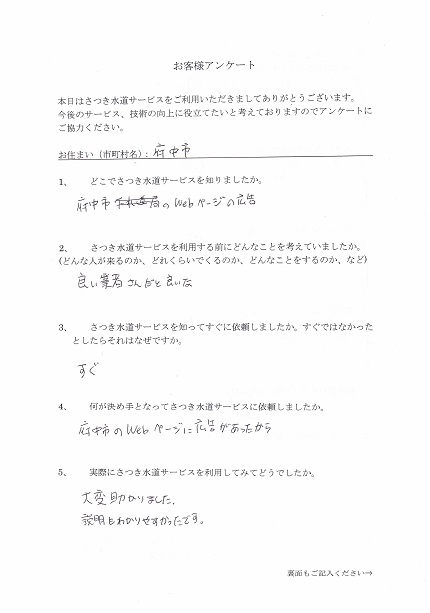 お客様アンケート
本日はさつき水道サービスをご利用いただきましてありがとうございます。
今後のサービス、技術の向上に役立てたいと考えておりますのでアンケートに
ご協力ください。
お住まい（市町村名）：府中市
1、 どこでさつき水道サービスを知りましたか。
府中市 のWebページの広告
2、 さつき水道サービスを利用する前にどんなことを考えていましたか。
(どんな人が来るのか、どれくらいでくるのか、どんなことをするのか、など)
良い業者さんだと良いな
3、 さつき水道サービスを知ってすぐに依頼しましたか。すぐではなかった
としたらそれはなぜですか。
すぐ
4、 何が決め手となってさつき水道サービスに依頼しましたか。
府中市のWebページに広告があったから
5、 実際にさつき水道サービスを利用してみてどうでしたか。
大変助かりました。
説明もわかりやすかったです。
裏面もご記入ください→